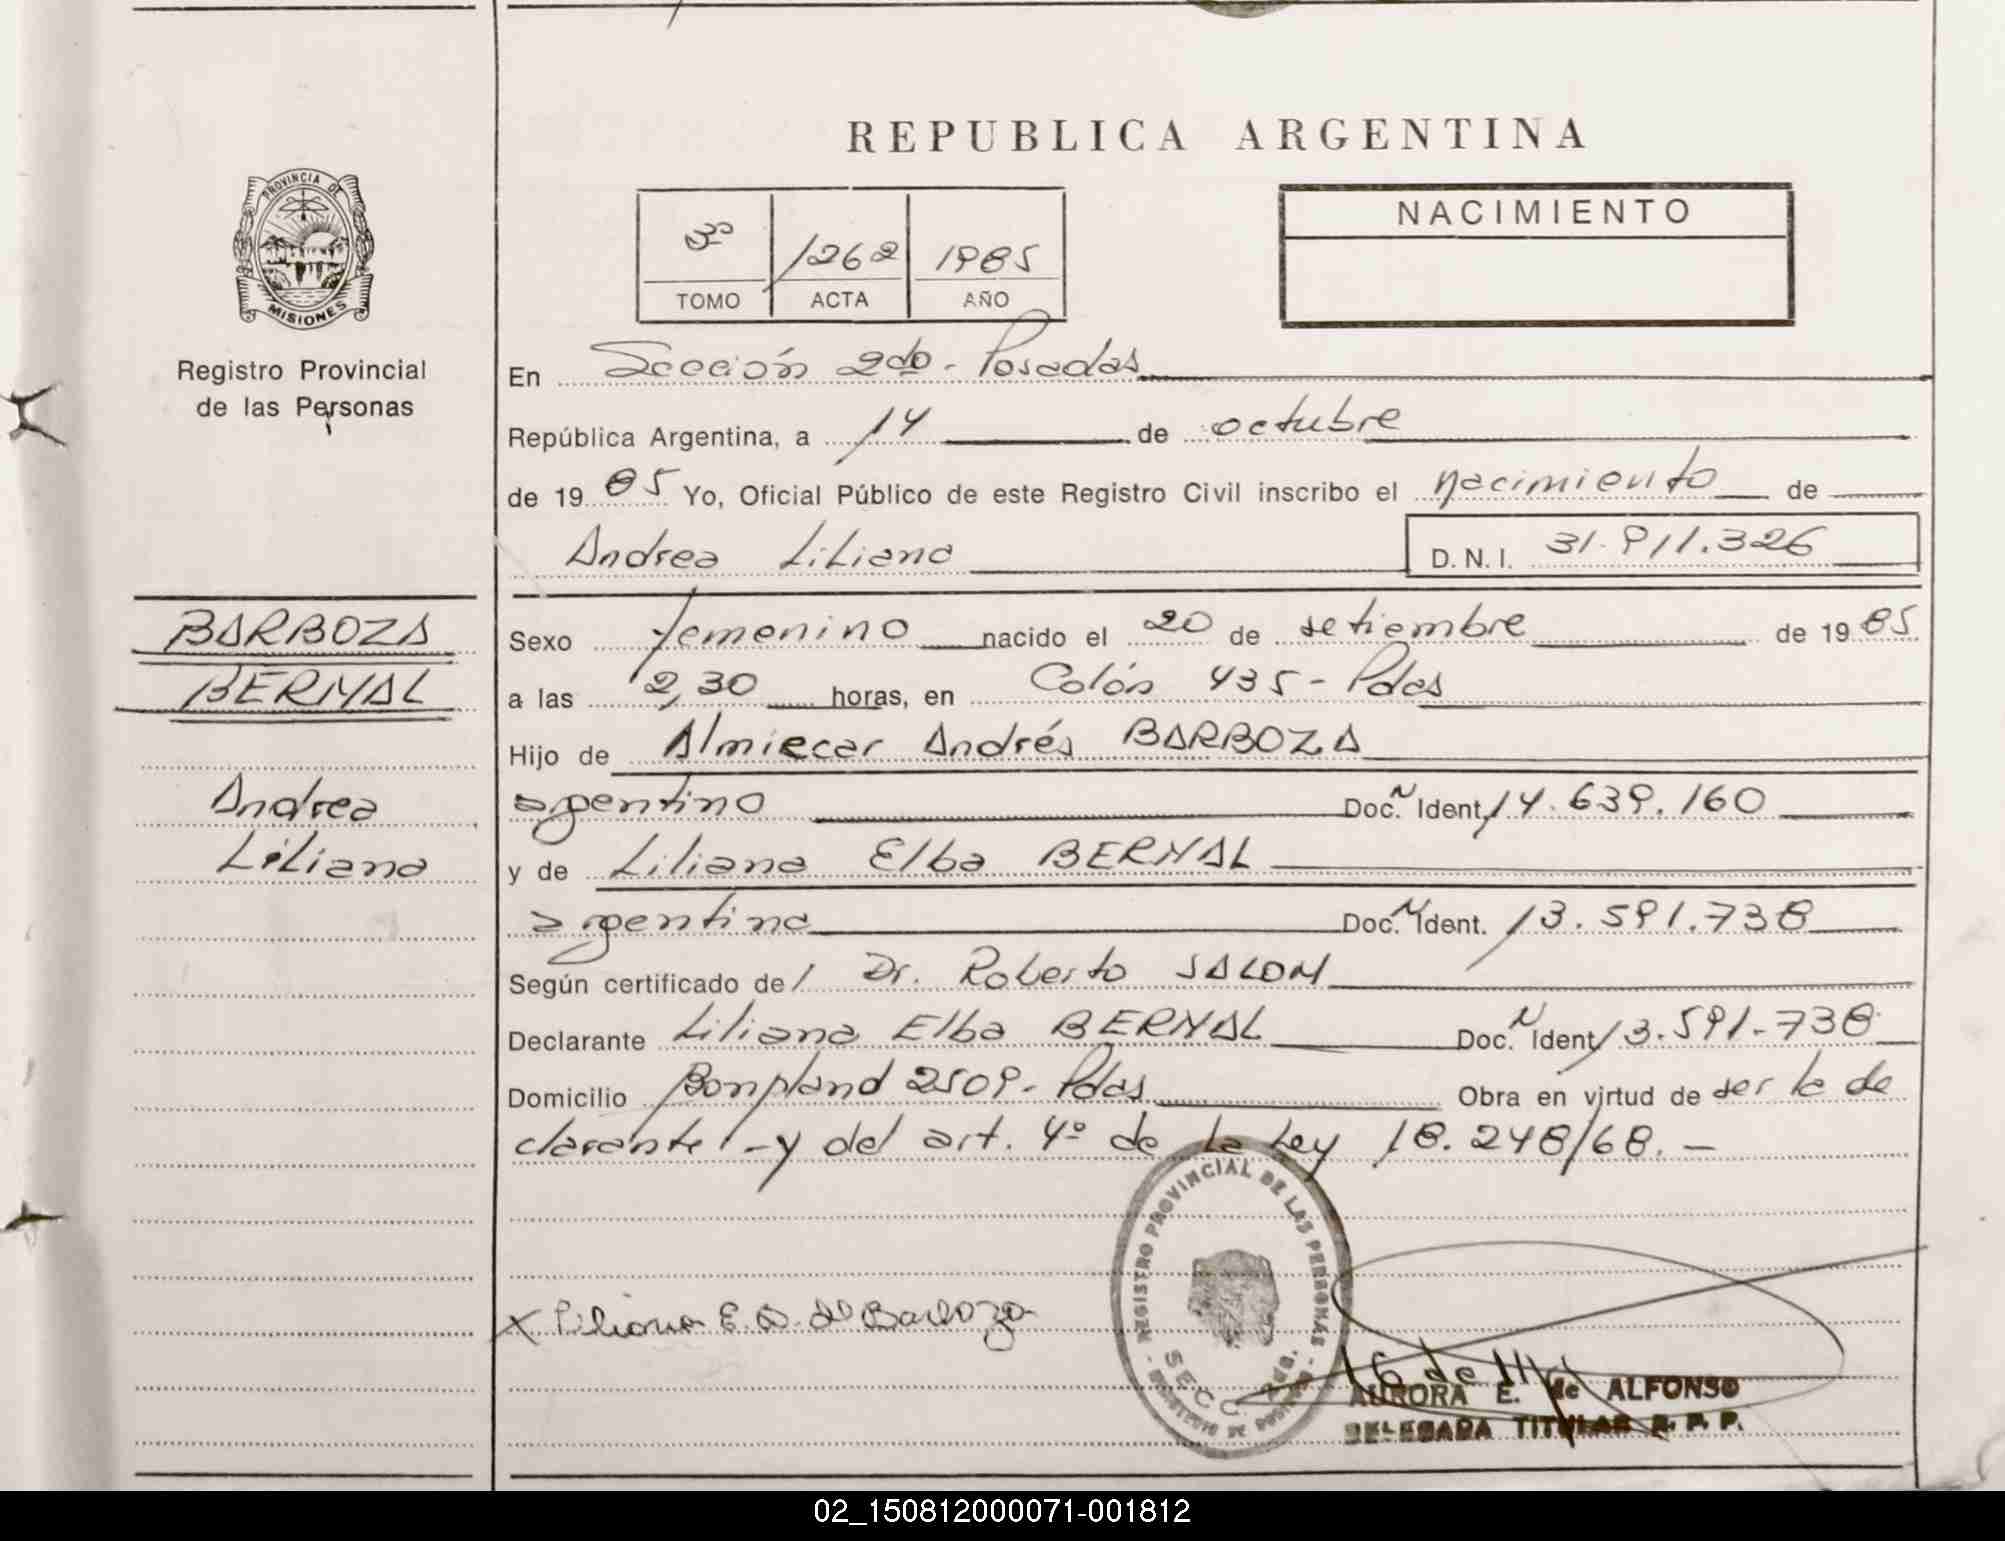 REPUBLICA ARGENTINA
PROVINCIA DE
MISIONES
Registro Provincial
de las Personas
3º 1262 1985
TOMO ACTA AÑO
NACIMIENTO
En Sección 2do - Posadas
República Argentina, a 14 de octubre
de 19 85 Yo, Oficial Público de este Registro Civil inscribo el nacimiento de
Andrea Liliana D.N.I. 31.911.326
BARBOZA
BERNAL
Andrea
Liliana
Sexo femenino nacido el 20 de setiembre de 19 85
a las 2,30 horas, en Colón 435 - Pdas
Hijo de Almiecar Andrés BARBOZA
argentino Doc. N Ident. 14.639.160
y de Liliana Elba BERNAL
argentina Doc. N Ident. 13.591.738
Según certificado de / Dr. Roberto SALOM
Declarante Liliana Elba BERNAL Doc. N Ident. 13.591.738
Domicilio Bonpland 2509 - Pdas Obra en virtud de ser la de
clarante - y del art. 4º de la Ley 18.248/68. -
REGISTRO PROVINCIAL DE LAS PERSONAS
SECC.
X Liliana E. B. de Barboza
AURORA E. de ALFONSO
DELEGADA TITULAR R. P. P.
02_150812000071-001812